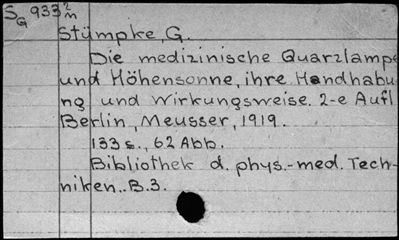 SG 933 2/m
Stümpke, G.
Die medizinische Quarzlampe
und Höhensonne, ihre Handhabu-
ng und Wirkungsweise. 2-e Aufl
Berlin, Meusser, 1919.
133 s., 62 Abb.
Bibliothek d. phys.-med. Tech-
niken. B.3.